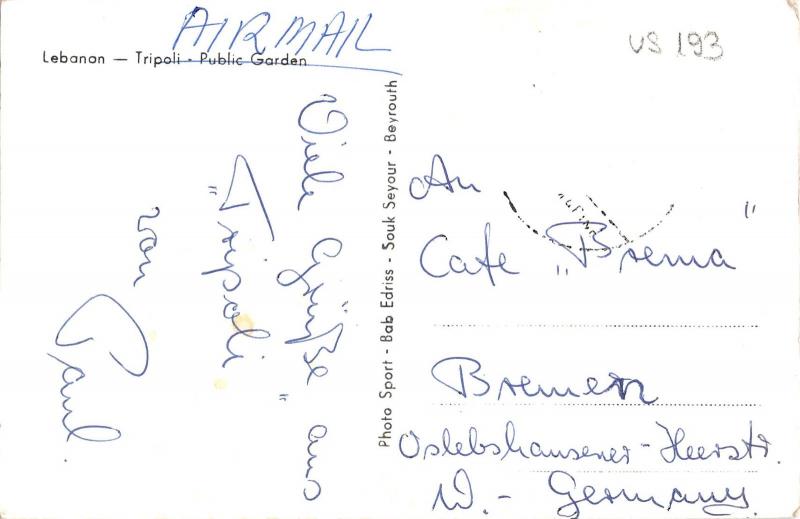 AIRMAIL
Lebanon — Tripoli - Public Garden
VS 193
Viele Grüße aus
"Tripoli"
von
Paul.
Photo Sport - Bab Edriss - Souk Seyour - Beyrouth
An
Cafe „Brema"
Bremen
Oslebshausener-Heerstr.
W.- Germany.